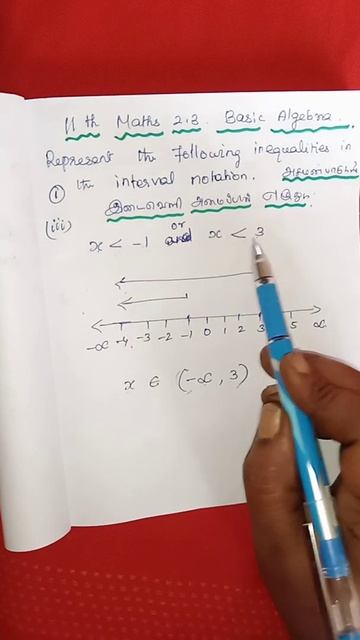 11th Maths 2.3. Basic Algebra.
Represent the following inequalities in
① the interval notation. அசமன்பாடுகளை
இடைவெளி அமைப்பில் எழுது.
(iii)
or
x < -1 and x < 3
-∞ -4 -3 -2 -1 0 1 2 3 5 ∞
x ∈ (-∞, 3)